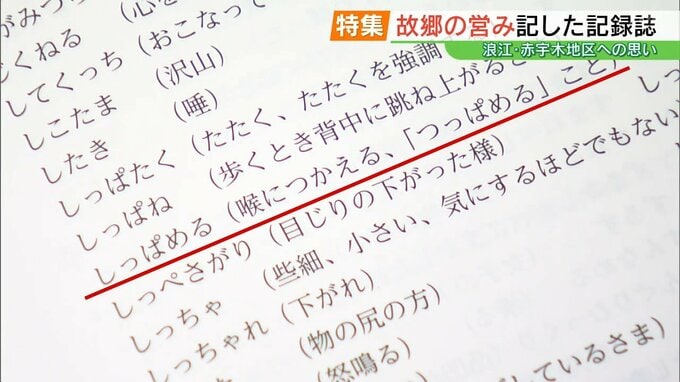 特集 故郷の営み記した記録誌
浪江・赤宇木地区への思い
がみつ
(心を
ごくねる
(おこなって
してくっち
(沢山)
しこたま
(唾)
したき
(たたく、たたくを強調
しっぱたく
(歩くとき背中に跳ね上がること
しっぱね
しっぱめる (喉につかえる、「つっぱめる」こと)
しっぺさがり (目じりの下がった様)
しっちゃ
(些細、小さい、気にするほどでもない
しっちゃれ (下がれ)
(物の尻の方)
(怒鳴る)
しているさま)